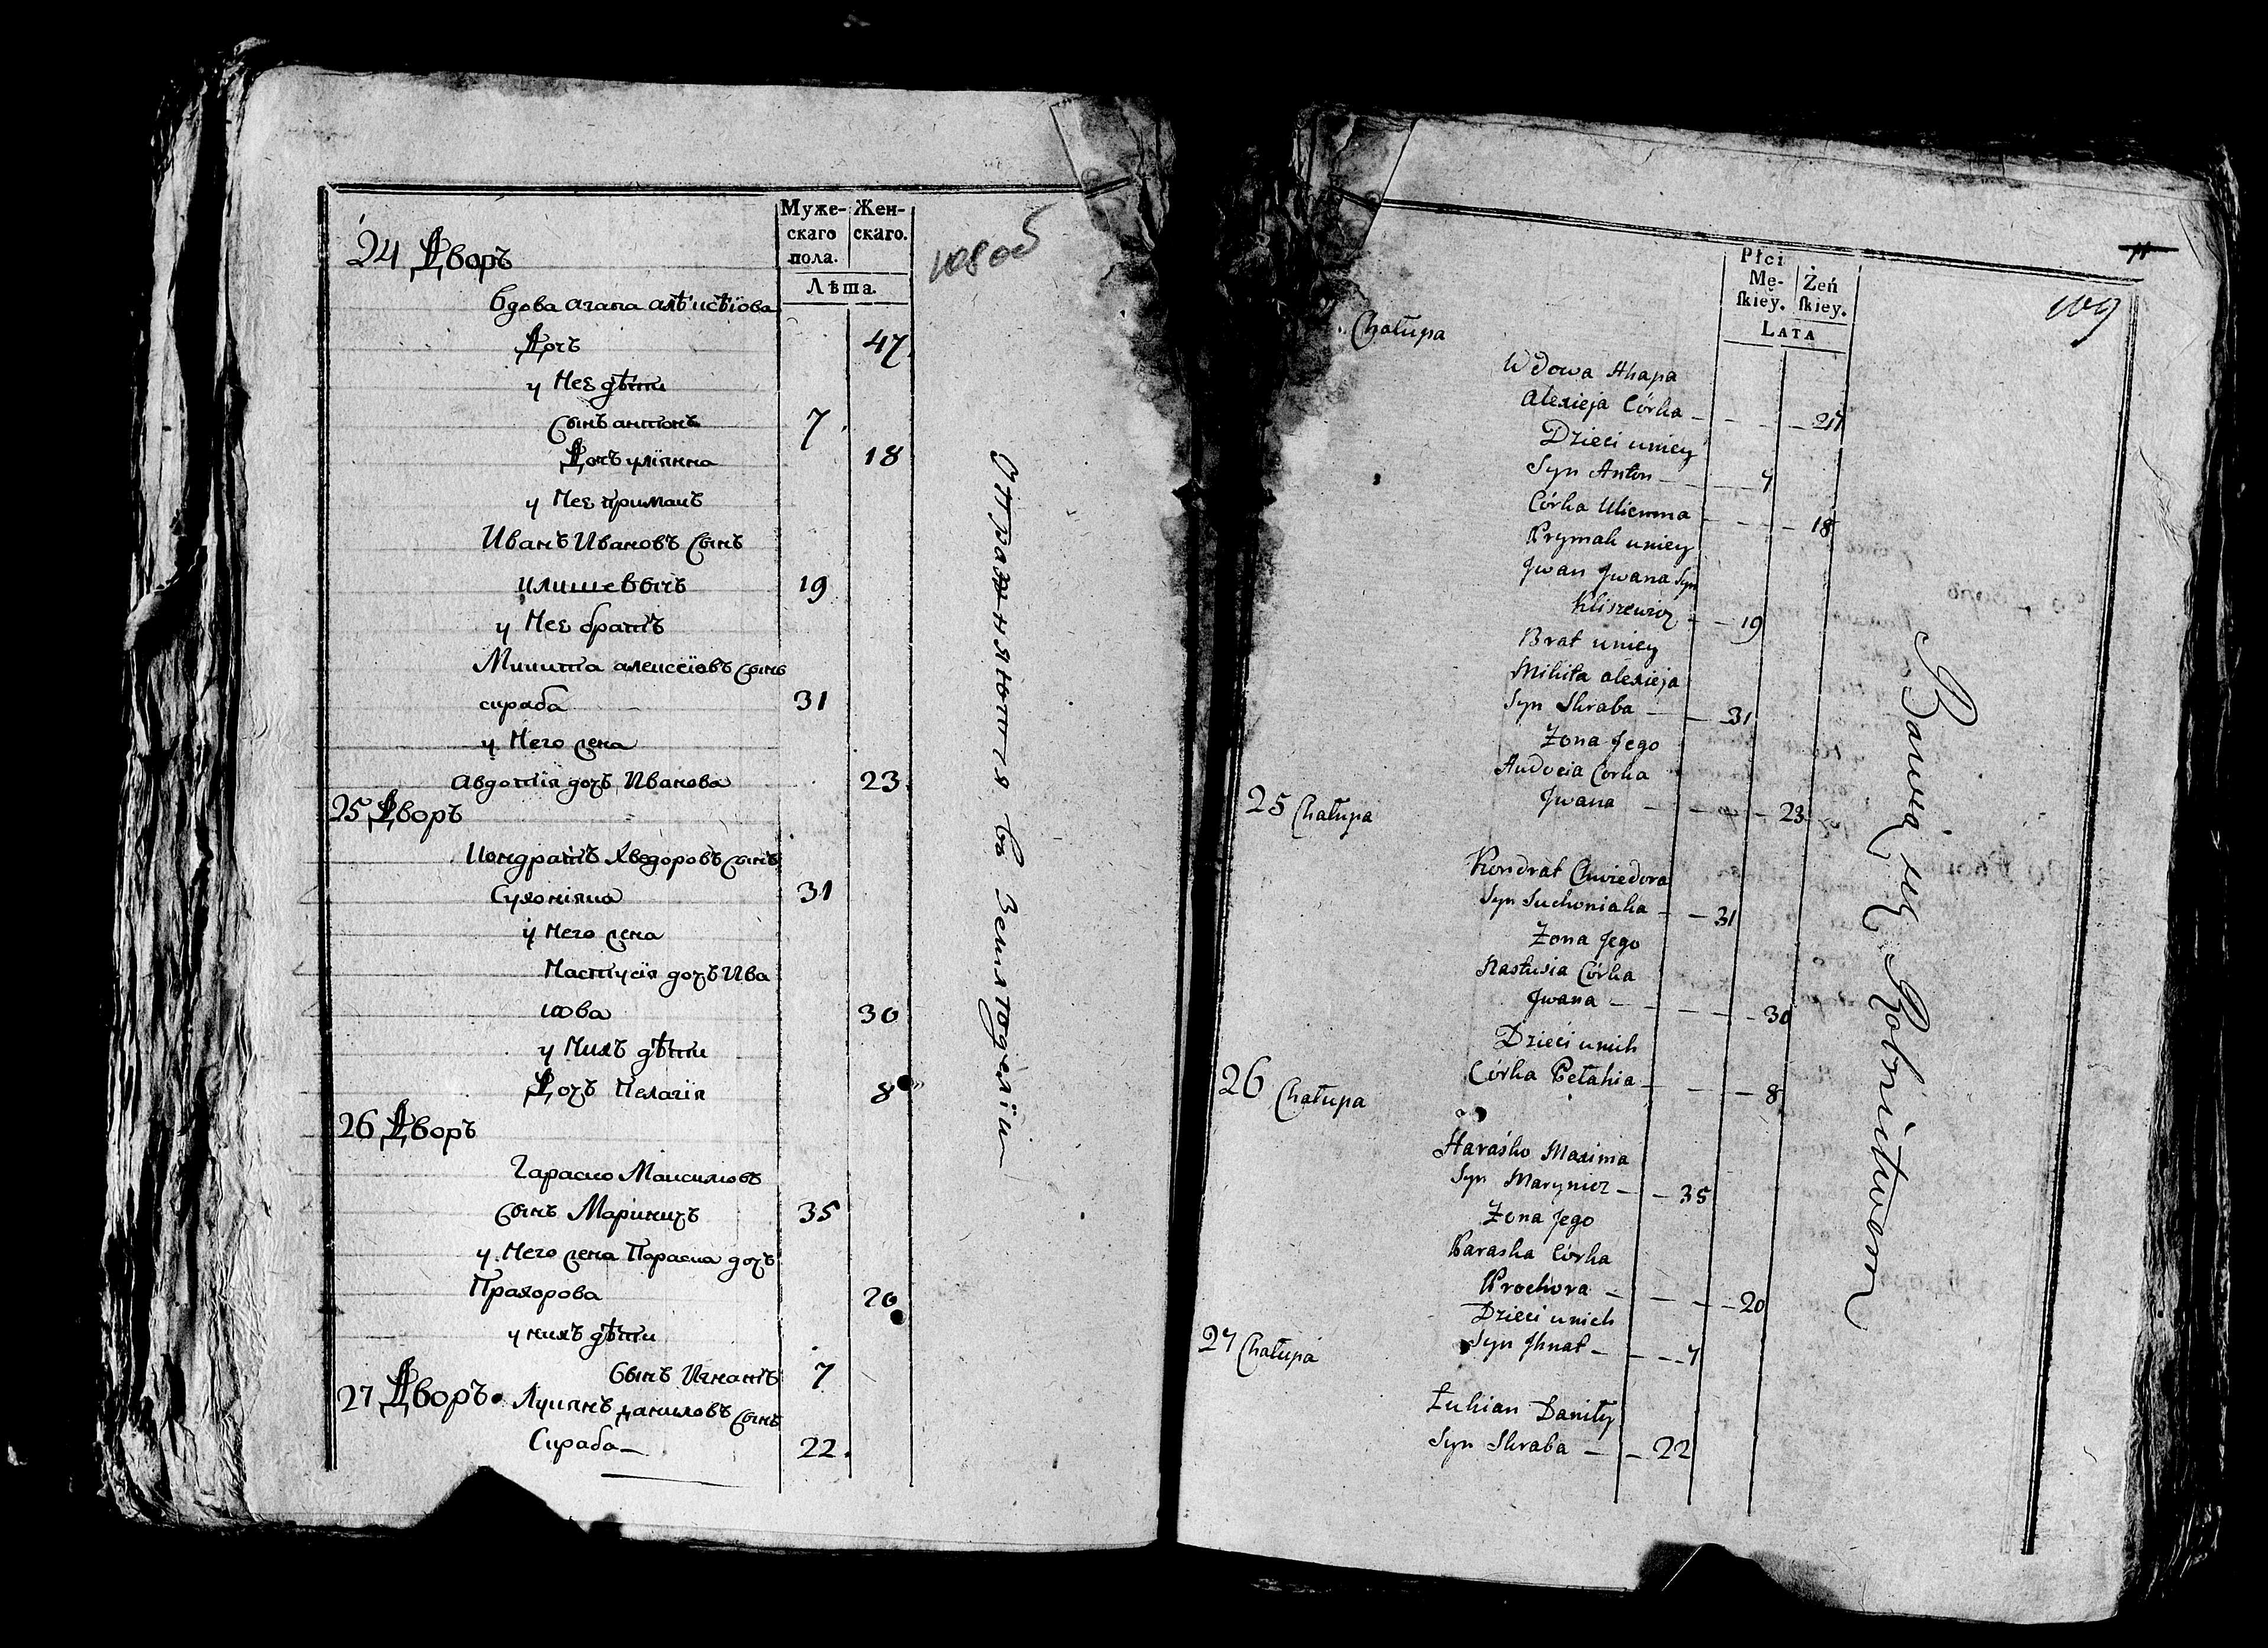 Муже-
скаго
пола.
Жен-
скаго.
Лѣта.
108 об
24 Дворъ
Вдова Агапа алѣксѣіова
Дочъ 47
у Нее дѣти
Сынъ антонъ 7
Дочъ улїянна 18
у Нее примакъ
Иванъ Ивановъ Сынъ
клишевичъ 19
у Нее братъ
Микита алексеіовъ Сынъ
скраба 31
у Него жена
Авдотїя дочъ Иванова 23
25 Дворъ
Кондратъ Хведоровъ Сынъ
Сухонїяка 31
у Него жена
Настусїя дочъ Ива
нова 30
у Нихъ дѣти
Дочъ Пелагїя 8
26 Дворъ
Гараско Максимовъ
Сынъ Мариничъ 35
у Него жена Параска дочъ
Прахорова 20
у нихъ дѣти
Сынъ Игнатъ 7
27 Дворъ Лукянъ даниловъ Сынъ
Скраба 22
Упражняются въ Земледелїи
Płci
Mę-
ſkiey.
Żeń
ſkiey.
LATA
109
Chałupa
Wdowa Ahapa
Alexieja Córka 47
Dzieci uniey
Syn Anton 7
Córka Ulienna 18
Prymak uniey
Jwan Jwana Syn
Kliszewicz 19
Brat uniey
Mikita alexieja
Syn Skraba 31
Zona Jego
Audocia Corka
Jwana 23
25 Chałupa
Kondrat Chwiedora
Syn Suchoniaka 31
Zona Jego
Nastusia Córka
Jwana 30
Dzieci unich
Córka Pełahia 8
26 Chałupa
Haraśko Maxima
Syn Marynicz 35
Zona Jego
Paraska Córka
Prochora 20
Dzieci unich
Syn Jhnat 7
27 Chałupa
Łukian Daniły
Syn Skraba 22
Bawią się Rolnictwem